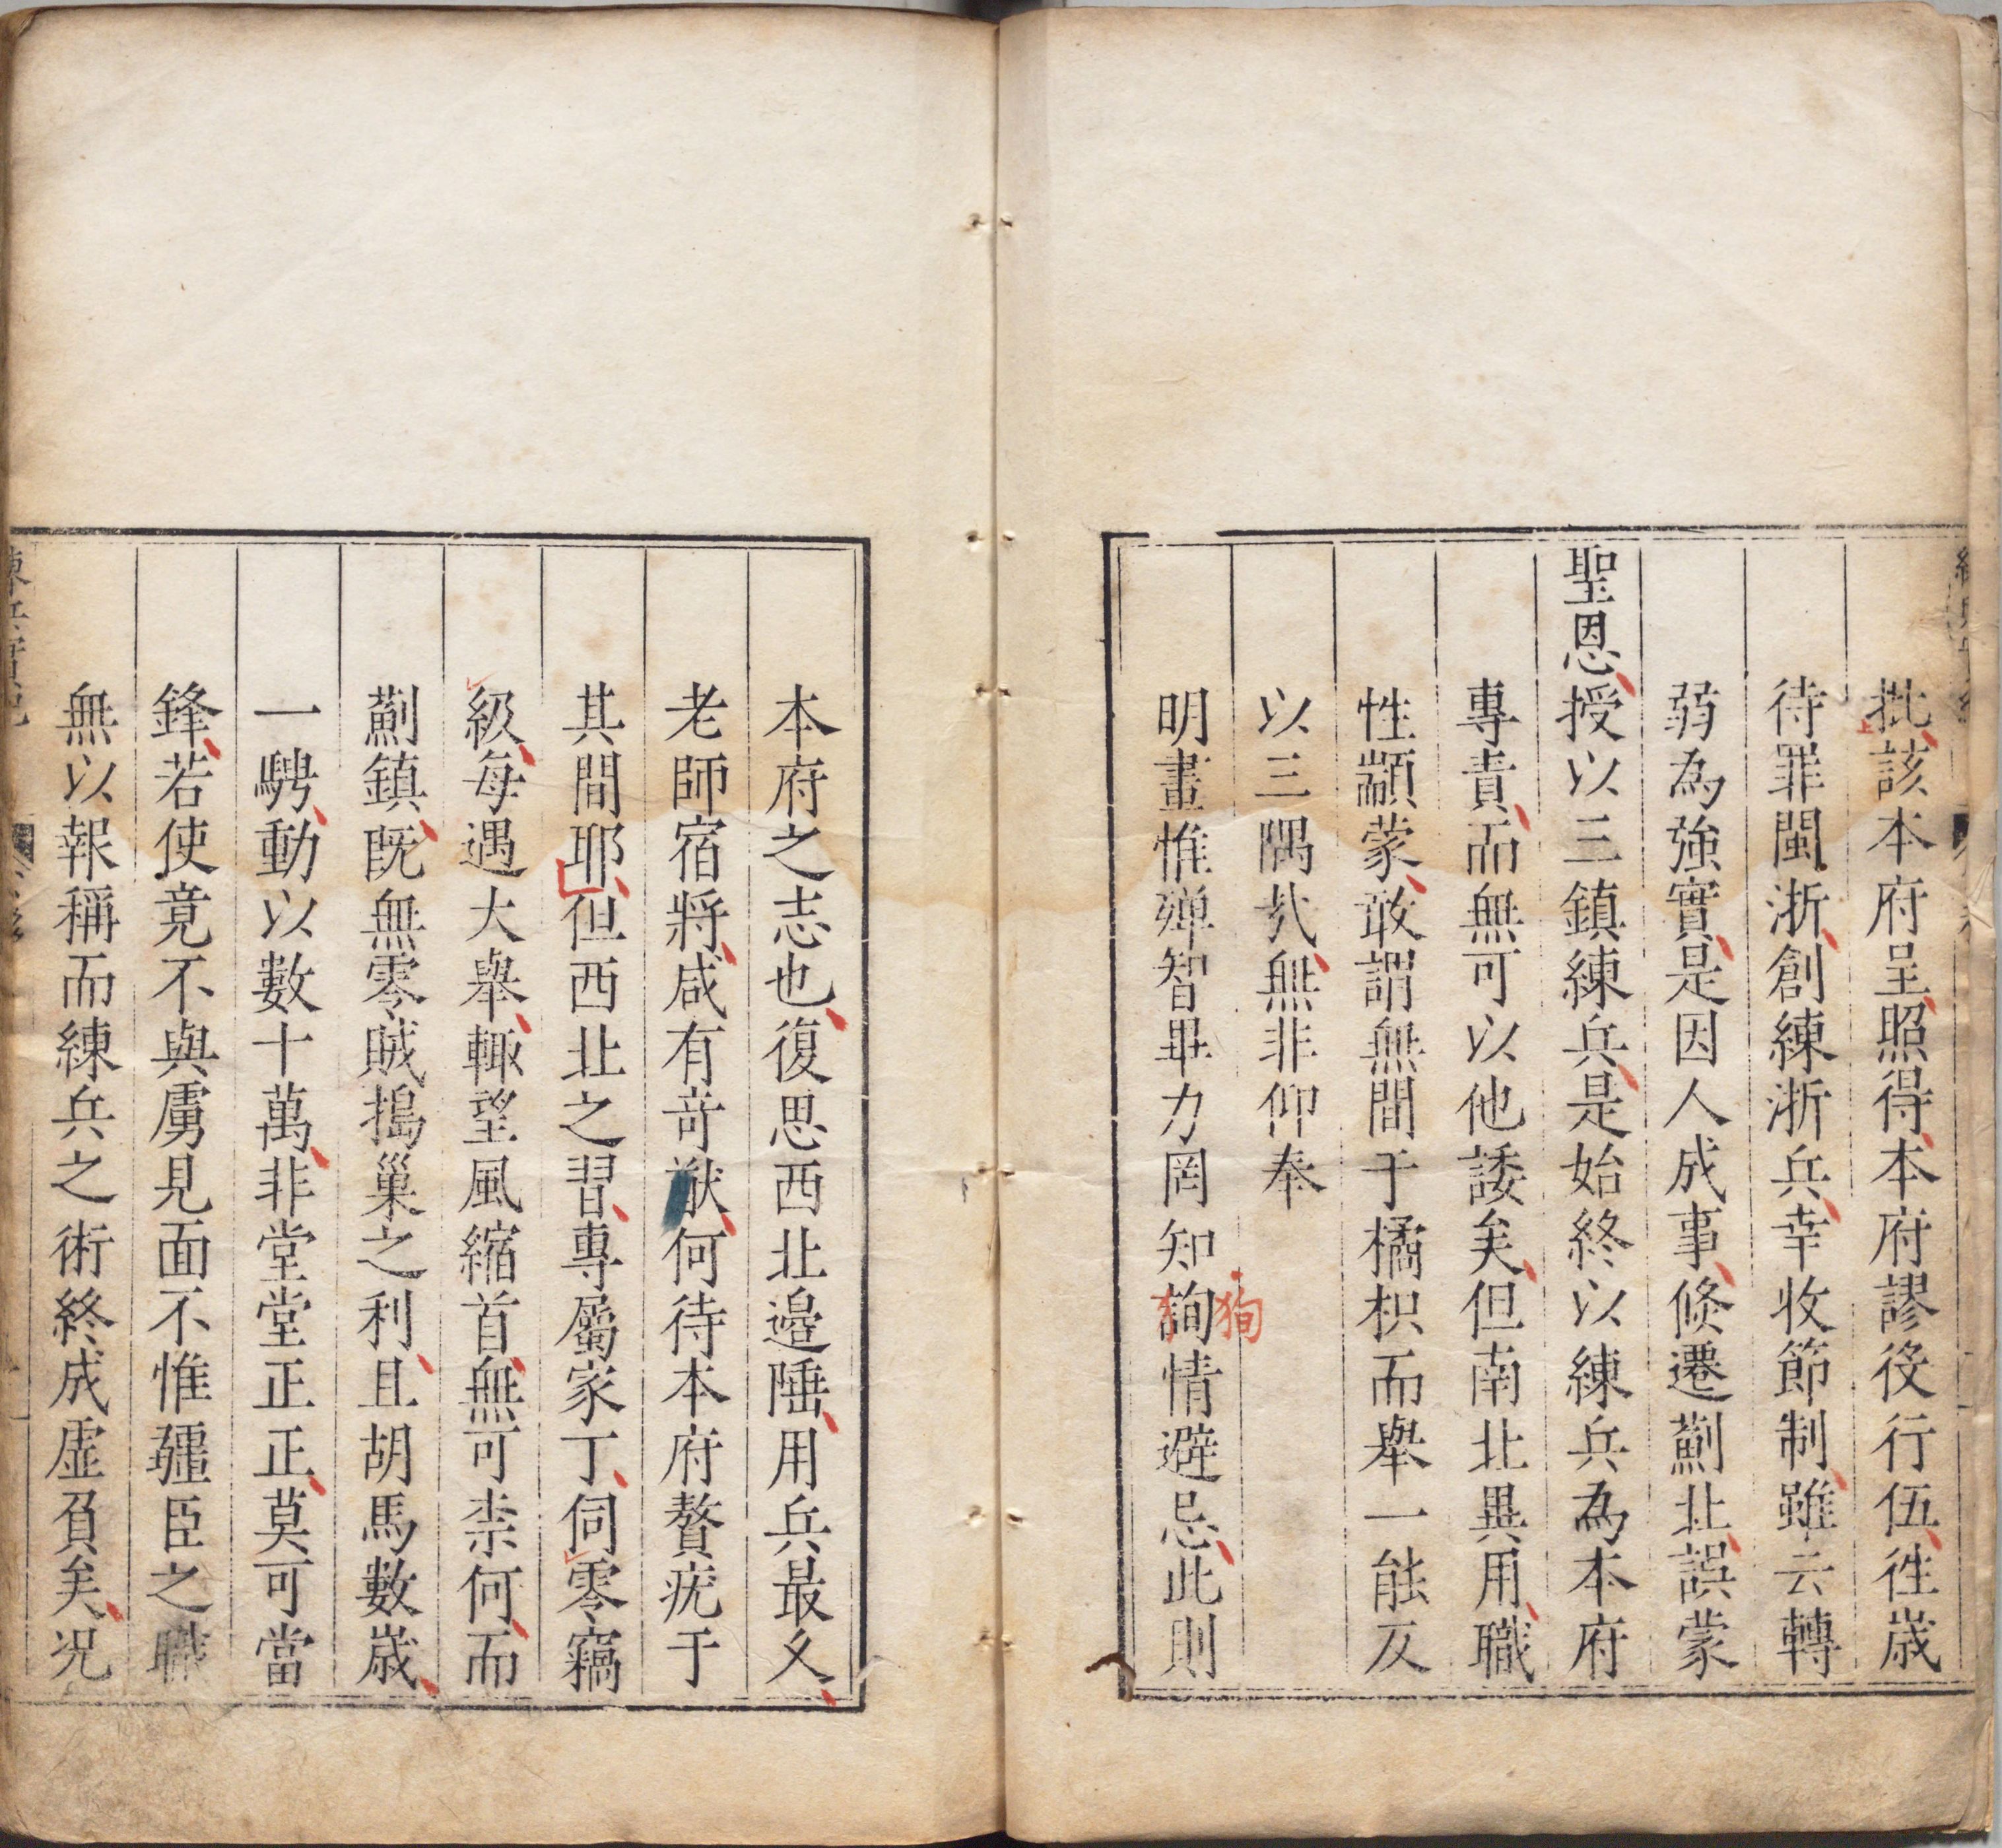 批該本府呈照得本府謬役徃行伍徃歲
待罪閩浙創練浙兵幸收節制雖云轉
弱為強實是因人成事倐遷薊北誤蒙
聖恩授以三鎮練兵是始終以練兵為本府
專責而無可以他諉矣但南北異用職
性顓蒙敢謂無間于橘枳而舉一能反
以三隅㢤無非仰奉
明畫惟殫智畢力罔知詢情避忌此則
狥
本府之志也復思西北邉陲用兵最乆
老師宿將咸有竒猷何待本府贅疣于
其間耶但西北之習專屬家丁伺零竊
級每遇大舉輙望風縮首無可柰何而
薊鎮旣無零賊搗巢之利且胡馬數歲
一騁動以數十萬非堂堂正正莫可當
鋒若使竟不與虜見面不惟疆臣之職
無以報稱而練兵之術終成虛負矣况